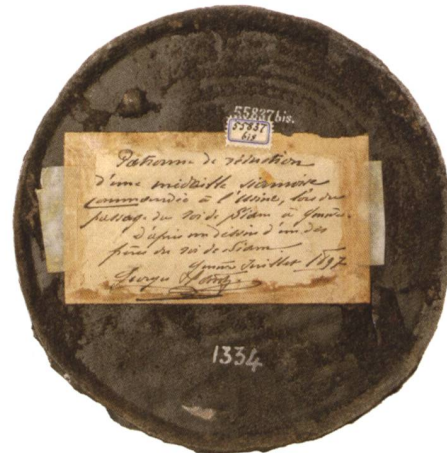 55837bis.
55837
bis
Patronne de réduction
d'une médaille siamoise
commandée à l'Usine, lors du
passage du roi de Siam à Genève.
D'après un dessin d'un des
frères du roi de Siam.
Genève Juillet 1897
Georges
1334